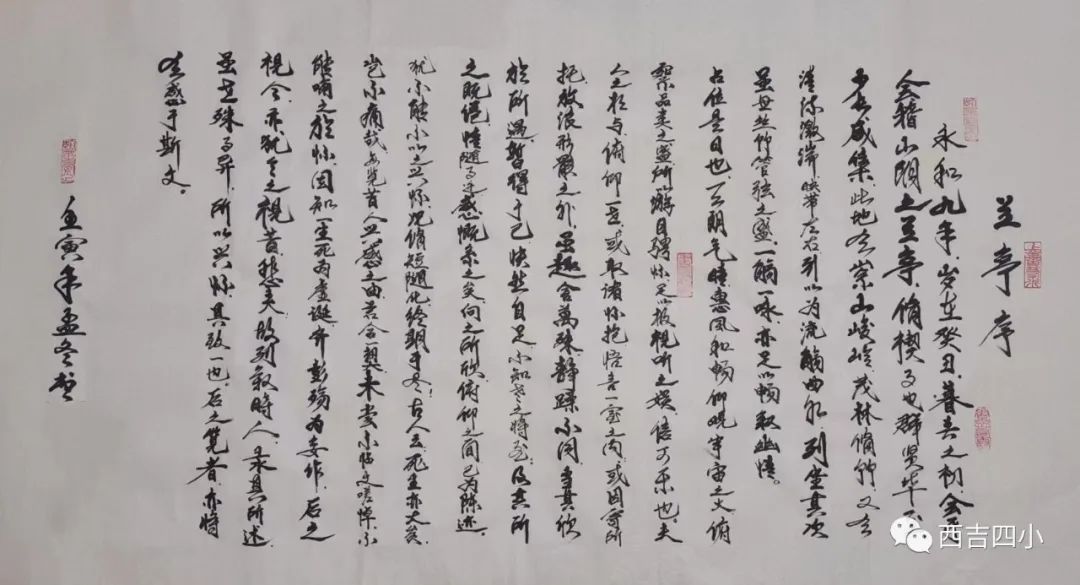 兰亭序
永和九年,岁在癸丑,暮春之初,会于
会稽山阴之兰亭,脩禊事也。群贤毕至,
少长咸集。此地有崇山峻岭,茂林脩竹,又有
清流激湍,映带左右,引以为流觞曲水,列坐其次,
虽无丝竹管弦之盛,一觞一咏,亦足以畅叙幽情。
是日也,天朗气晴,惠风和畅,仰观宇宙之大,俯
察品类之盛,所以游目骋怀,足以极视听之娱,信可乐也。夫
人之相与,俯仰一世,或取诸怀抱,悟言一室之内,或因寄所
托,放浪形骸之外。虽趣舍萬殊,静躁不同,当其欣
於所遇,暂得于己,快然自足,不知老之将至。及其所
之既倦,情随事迁,感慨系之矣。向之所欣,俯仰之间,已为陈迹,
犹不能不以之兴怀。况脩短随化,终期于尽。古人云:死生亦大矣。
岂不痛哉!每览昔人兴感之由,若合一契,未尝不临文嗟悼,不
能喻之於怀。固知一生死为虚诞,齐彭殇为妄作。后之
视今,亦犹今之视昔。悲夫!故列叙時人,录其所述,
虽世殊事异,所以兴怀,其致一也。后之览者,亦将
有感于斯文。
壬寅年孟冬
西吉四小